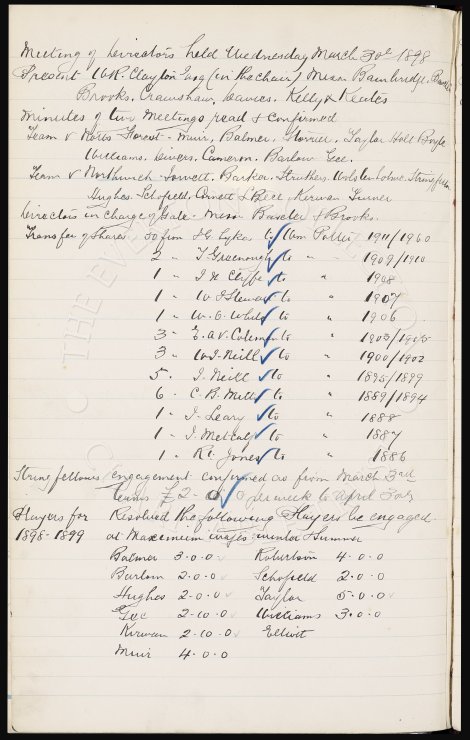 Meeting of Directors held Wednesday March 30th 1898
Present W.R. Clayton Esq (in the chair) Messrs Bainbridge, Baxter
Brooks. Crawshaw, Davies. Kelly & Keates
Minutes of two Meetings read & confirmed
Team v Notts Forest - Muir, Balmer, Storrier, Taylor Holt Boyle
Williams. Divers. Cameron. Barlow Gee.
Team v Northwich - Barker. Struthers. Wolstenholme. Stringfellow
Hughes. Schofield. Kirwan Turner
Directors in charge of Gate - Messrs Baxter & Brooks.
Transfer of Shares - 50 from to Wm Pottie 1911/1960
2 " T Greenough to " 1909/1910
1 " J H Cliffe to " 1908
1 " W J Stewart to " 1907
1 " W. O. White to " 1906
3 " E. A V. Coleman to " 1903/1905
3 " W J. Neill to " 1900/1902
5 " J. Neill to " 1895/1899
6 " C. B. Mills to " 1889/1894
1 " J. Leary to " 1888
1 " J. Metcalf to " 1887
1 " Rt. Jones to " 1886
Stringfellows engagement confirmed as from March 3rd
terms £2-0-0 per week to April 30th
Players for Resolved the following Players be engaged
1898-1899 at Maximum wages winter & summer
Balmer 3.0.0 Robertson 4.0.0
Barlow 2.0.0 Schofield 2.0.0
Hughes 2.0.0 Taylor 5.0.0
Gee 2-10.0 Williams 3.0.0
Kirwan 2-10.0 Elliott
Muir 4.0.0